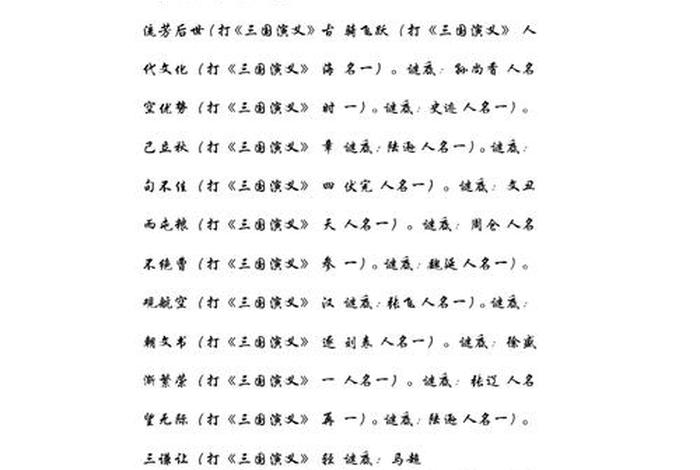 流芳后世(打《三国演义》古 骑飞跃(打《三国演义》人
代文化(打《三国演义》海 名一)。谜底:孙尚香 人名
空优势(打《三国演义》时 一)。谜底:史迹 人名一)。
己立秋(打《三国演义》章 谜底:陆逊 人名一)。谜底:
句不佳(打《三国演义》四 伏完 人名一)。谜底:文丑
面屯粮(打《三国演义》天 人名一)。谜底:周仓 人名
不绝曹(打《三国演义》参 一)。谜底:魏延 人名一)。
观航空(打《三国演义》汉 谜底:张飞 人名一)。谜底:
朝文书(打《三国演义》逐 刘表 人名一)。谜底:徐盛
渐繁荣(打《三国演义》一 人名一)。谜底:张辽 人名
望无际(打《三国演义》再 一)。谜底:陆逊 人名一)。
三谦让(打《三国演义》轻 谜底:马超